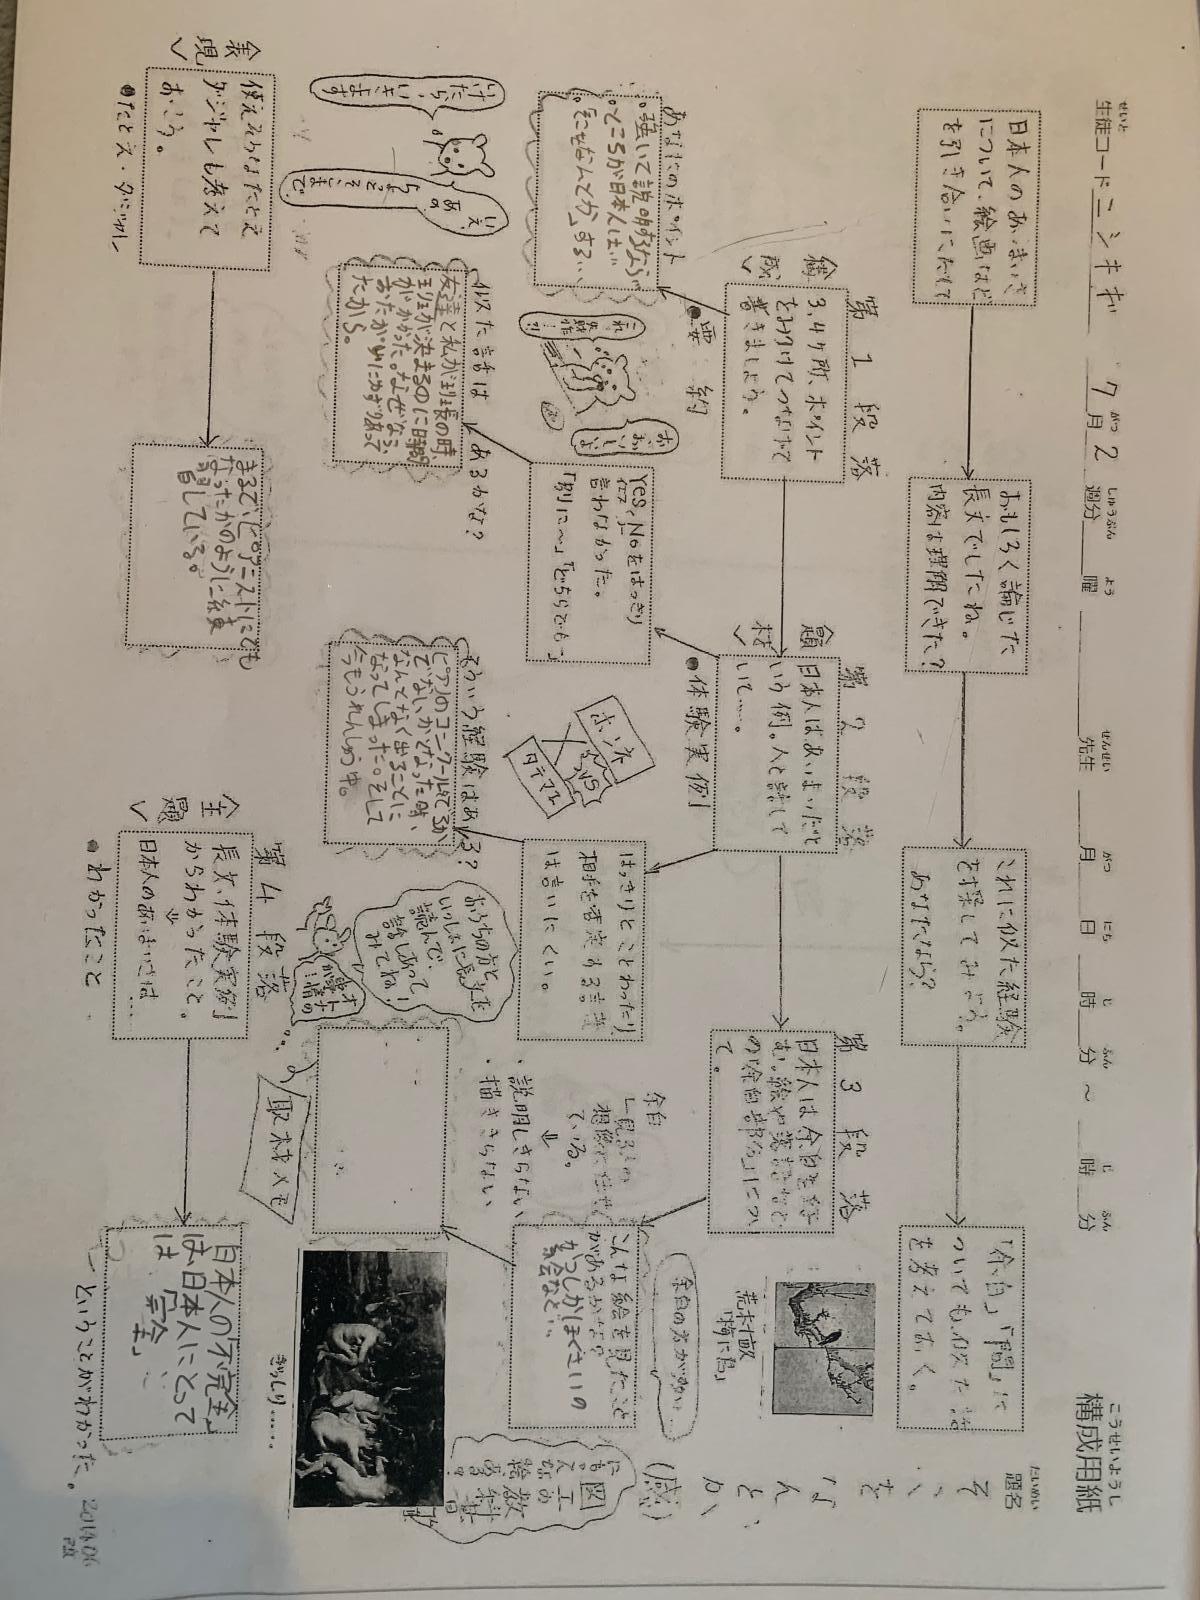 構成用紙
こうせいようし
生徒コード ニシキギ 7月2週分 曜 先生 月 日 時 分 ~ 時 分
題名
そこをなんとか
(感)
日本人のあいまいさ
について、絵画など
を引き合いに
おもしろく論じた
長文でしたね。
内容は理解できた?
これに似た経験
を探してみよう。
あなたなら?
「余白」「間」に
ついても似た話
を考えておく。
第1段落
構成
3、4ヶ所、ポイント
をみつけてつなげて
書きましょう。
●要約
あなたのポイント
。強いて説明するなら
。ところが日本人は…
。「そこをなんとか」する…
これ
失敗作…?!
おおいしょ
第2段落
題材
日本人はあいまいだと
いう例。人と話して
いて……。
●体験実例
Yes、Noをはっきり
言わなかった。
「別に~」「どちらでも」
はっきりとことわったり
相手を否定する言葉
は言いにくい。
ホンネ
VS
タテマエ
似た話はあるかな?
友達と私が班長の時、
班が決まるのに時間
がかかった。なぜなら、
おたがいにかずりあって
たから。
そういう経験はある?
ピアノのコンクールにでるか
でないかとなった時、
なんとなく出ることに
なってしまった。そして
今もうれんしゅう中。
おうちの方と
いっしょに長文を
読んで、
話しあって
みてね!
第3段落
日本人は余白を好
む。絵や落語など
の「余白部分」につい
て。
余白
見る人の
想像に任せ
ている。
・説明しきらない
・描ききらない
こんな絵を見たこと
があるかな?
かつしかほくさいの
絵など…
(余白の方が多い…
荒木村重
「梅に鳥」
図工の教科書
ぎっしり……
取材メモ
表現
使えそうなたとえ
ダジャレも考えて
おこう。
●たとえ・ダジャレ
いけたら、
いきます
いえ、
あの
ちょとそこまで
まるで、ピアニストにでも
なったかのように練
習している。
主題
第4段落
長文、体験実例
からわかったこと。
⇓
日本人のあいまいさは…
●わかったこと
日本人の「不完全」
は、日本人にとって
は「完全」
ということがわかった。